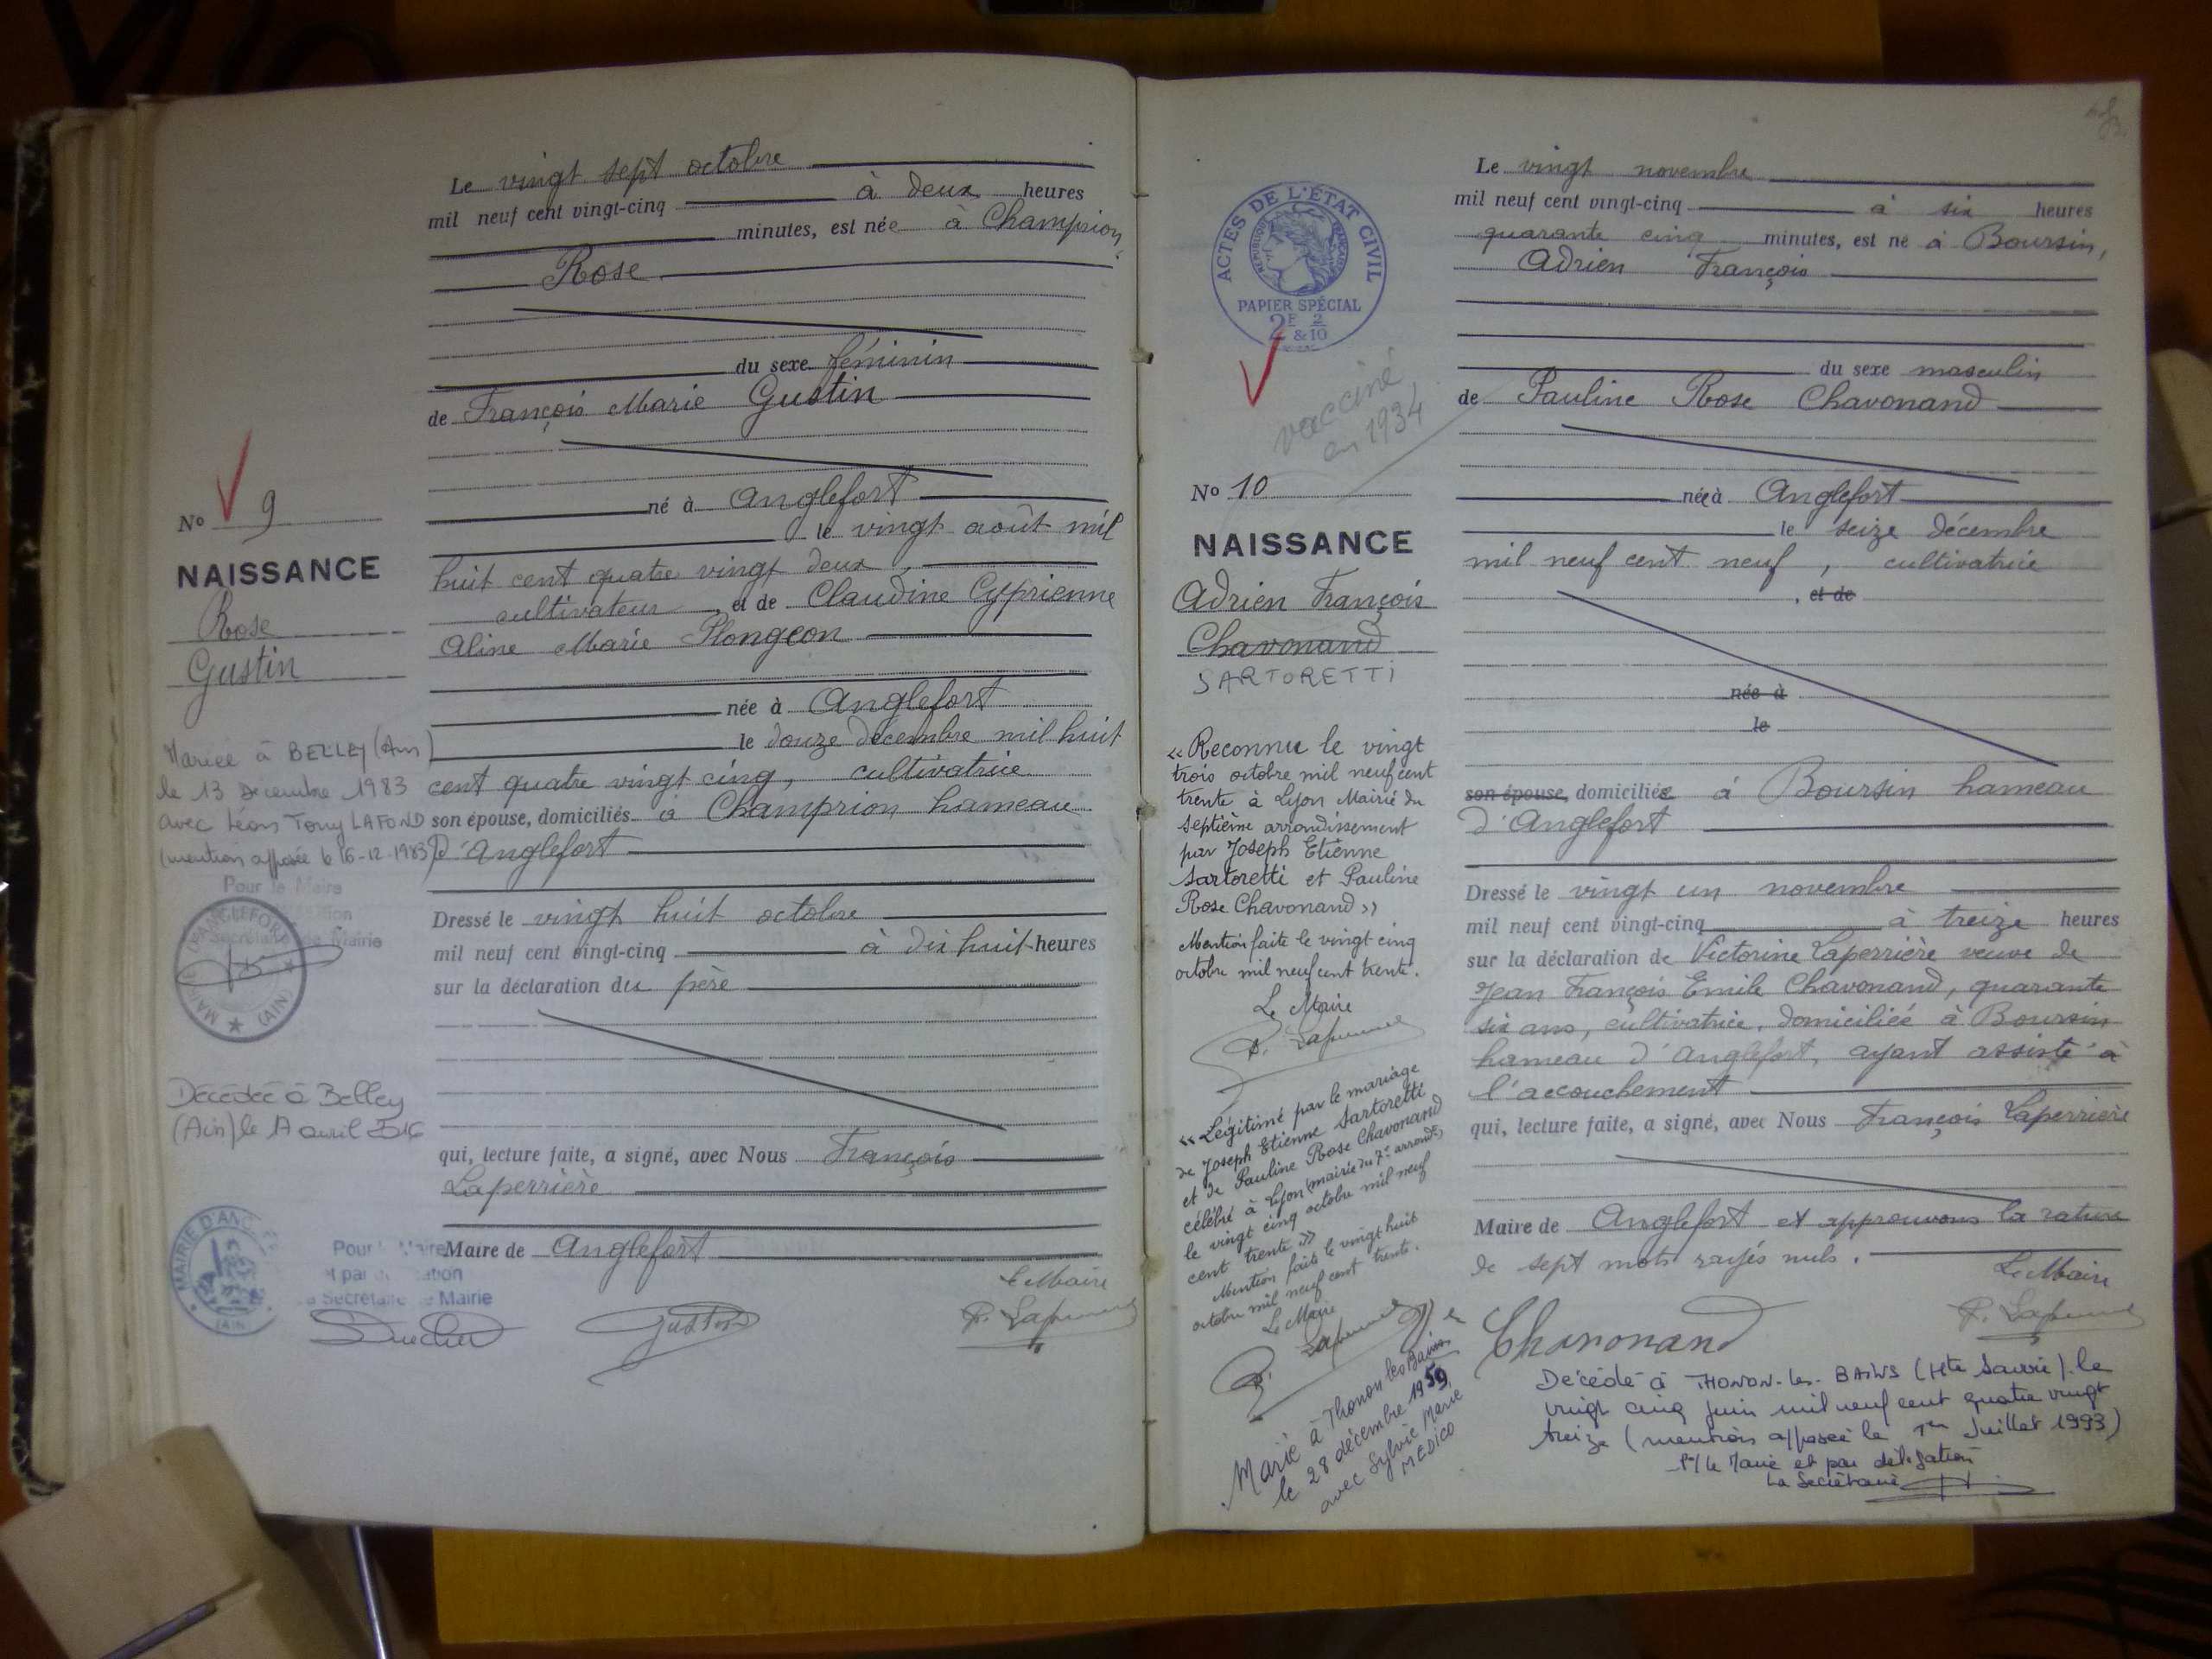 Le vingt sept octobre
mil neuf cent vingt-cinq à deux heures
minutes, est née à Champrion,
Rose
du sexe féminin
de François Marie Gustin
né à Anglefort
le vingt août mil
huit cent quatre vingt deux,
cultivateur, et de Claudine Cyprienne
Aline Marie Plongeon
née à Anglefort
le douze décembre mil huit
cent quatre vingt cinq, cultivatrice
son épouse, domiciliés à Champrion hameau
d'Anglefort
Dressé le vingt huit octobre
mil neuf cent vingt-cinq à dix huit heures
sur la déclaration du père
qui, lecture faite, a signé, avec Nous François
Laperrière
Maire de Anglefort
Le Maire
Gustin
No 9
NAISSANCE
Rose
Gustin
Mariée à BELLEY (Ain)
le 13 Décembre 1983
avec Léon Tony LAFOND
(mention apposée le 16-12-1983)
Pour le Maire
Secrétaire de Mairie
MAIRIE D'ANGLEFORT
(AIN)
Décédée à Belley
(Ain) le avril
MAIRIE D'ANGLEFORT
AIN
Pour le Maire
et par délégation
la Secrétaire de Mairie
ACTES DE L'ÉTAT CIVIL
RÉPUBLIQUE FRANÇAISE
PAPIER SPÉCIAL
2F & 2/10
vacciné
en 1934
No 10
NAISSANCE
Adrien François
Chavonand
SARTORETTI
«Reconnu le vingt
trois octobre mil neuf cent
trente à Lyon Mairie du
septième arrondissement
par Joseph Etienne
Sartoretti et Pauline
Rose Chavonand»
Mention faite le vingt cinq
octobre mil neuf cent trente.
Le Maire
«Légitimé par le mariage
de Joseph Etienne Sartoretti
et de Pauline Rose Chavonand
célébré à Lyon (mairie du 7e arrondt)
le vingt cinq octobre mil neuf
cent trente»
Mention faite le vingt huit
octobre mil neuf cent trente.
Le Maire
Marié à Thonon les Bains
le 28 décembre 1959
avec Sylvie Marie
MEDICO
Le vingt novembre
mil neuf cent vingt-cinq à six heures
quarante cinq minutes, est né à Boursin,
Adrien François
du sexe masculin
de Pauline Rose Chavonand
née à Anglefort
le seize décembre
mil neuf cent neuf, cultivatrice
, et de
née à
le
son épouse, domiciliée à Boursin hameau
d'Anglefort
Dressé le vingt un novembre
mil neuf cent vingt-cinq à treize heures
sur la déclaration de Victorine Laperrière veuve de
Jean François Emile Chavonand, quarante
six ans, cultivatrice, domiciliée à Boursin
hameau d'Anglefort, ayant assisté à
l'accouchement
qui, lecture faite, a signé, avec Nous François Laperrière
Maire de Anglefort et approuvons la rature
de sept mots rayés nuls.
Le Maire
Chavonand
Décédé à THONON-les-BAINS (Hte Savoie) le
vingt cinq juin mil neuf cent quatre vingt
treize (mention apposée le 1er Juillet 1993)
P/ le Maire et par délégation
La Secrétaire